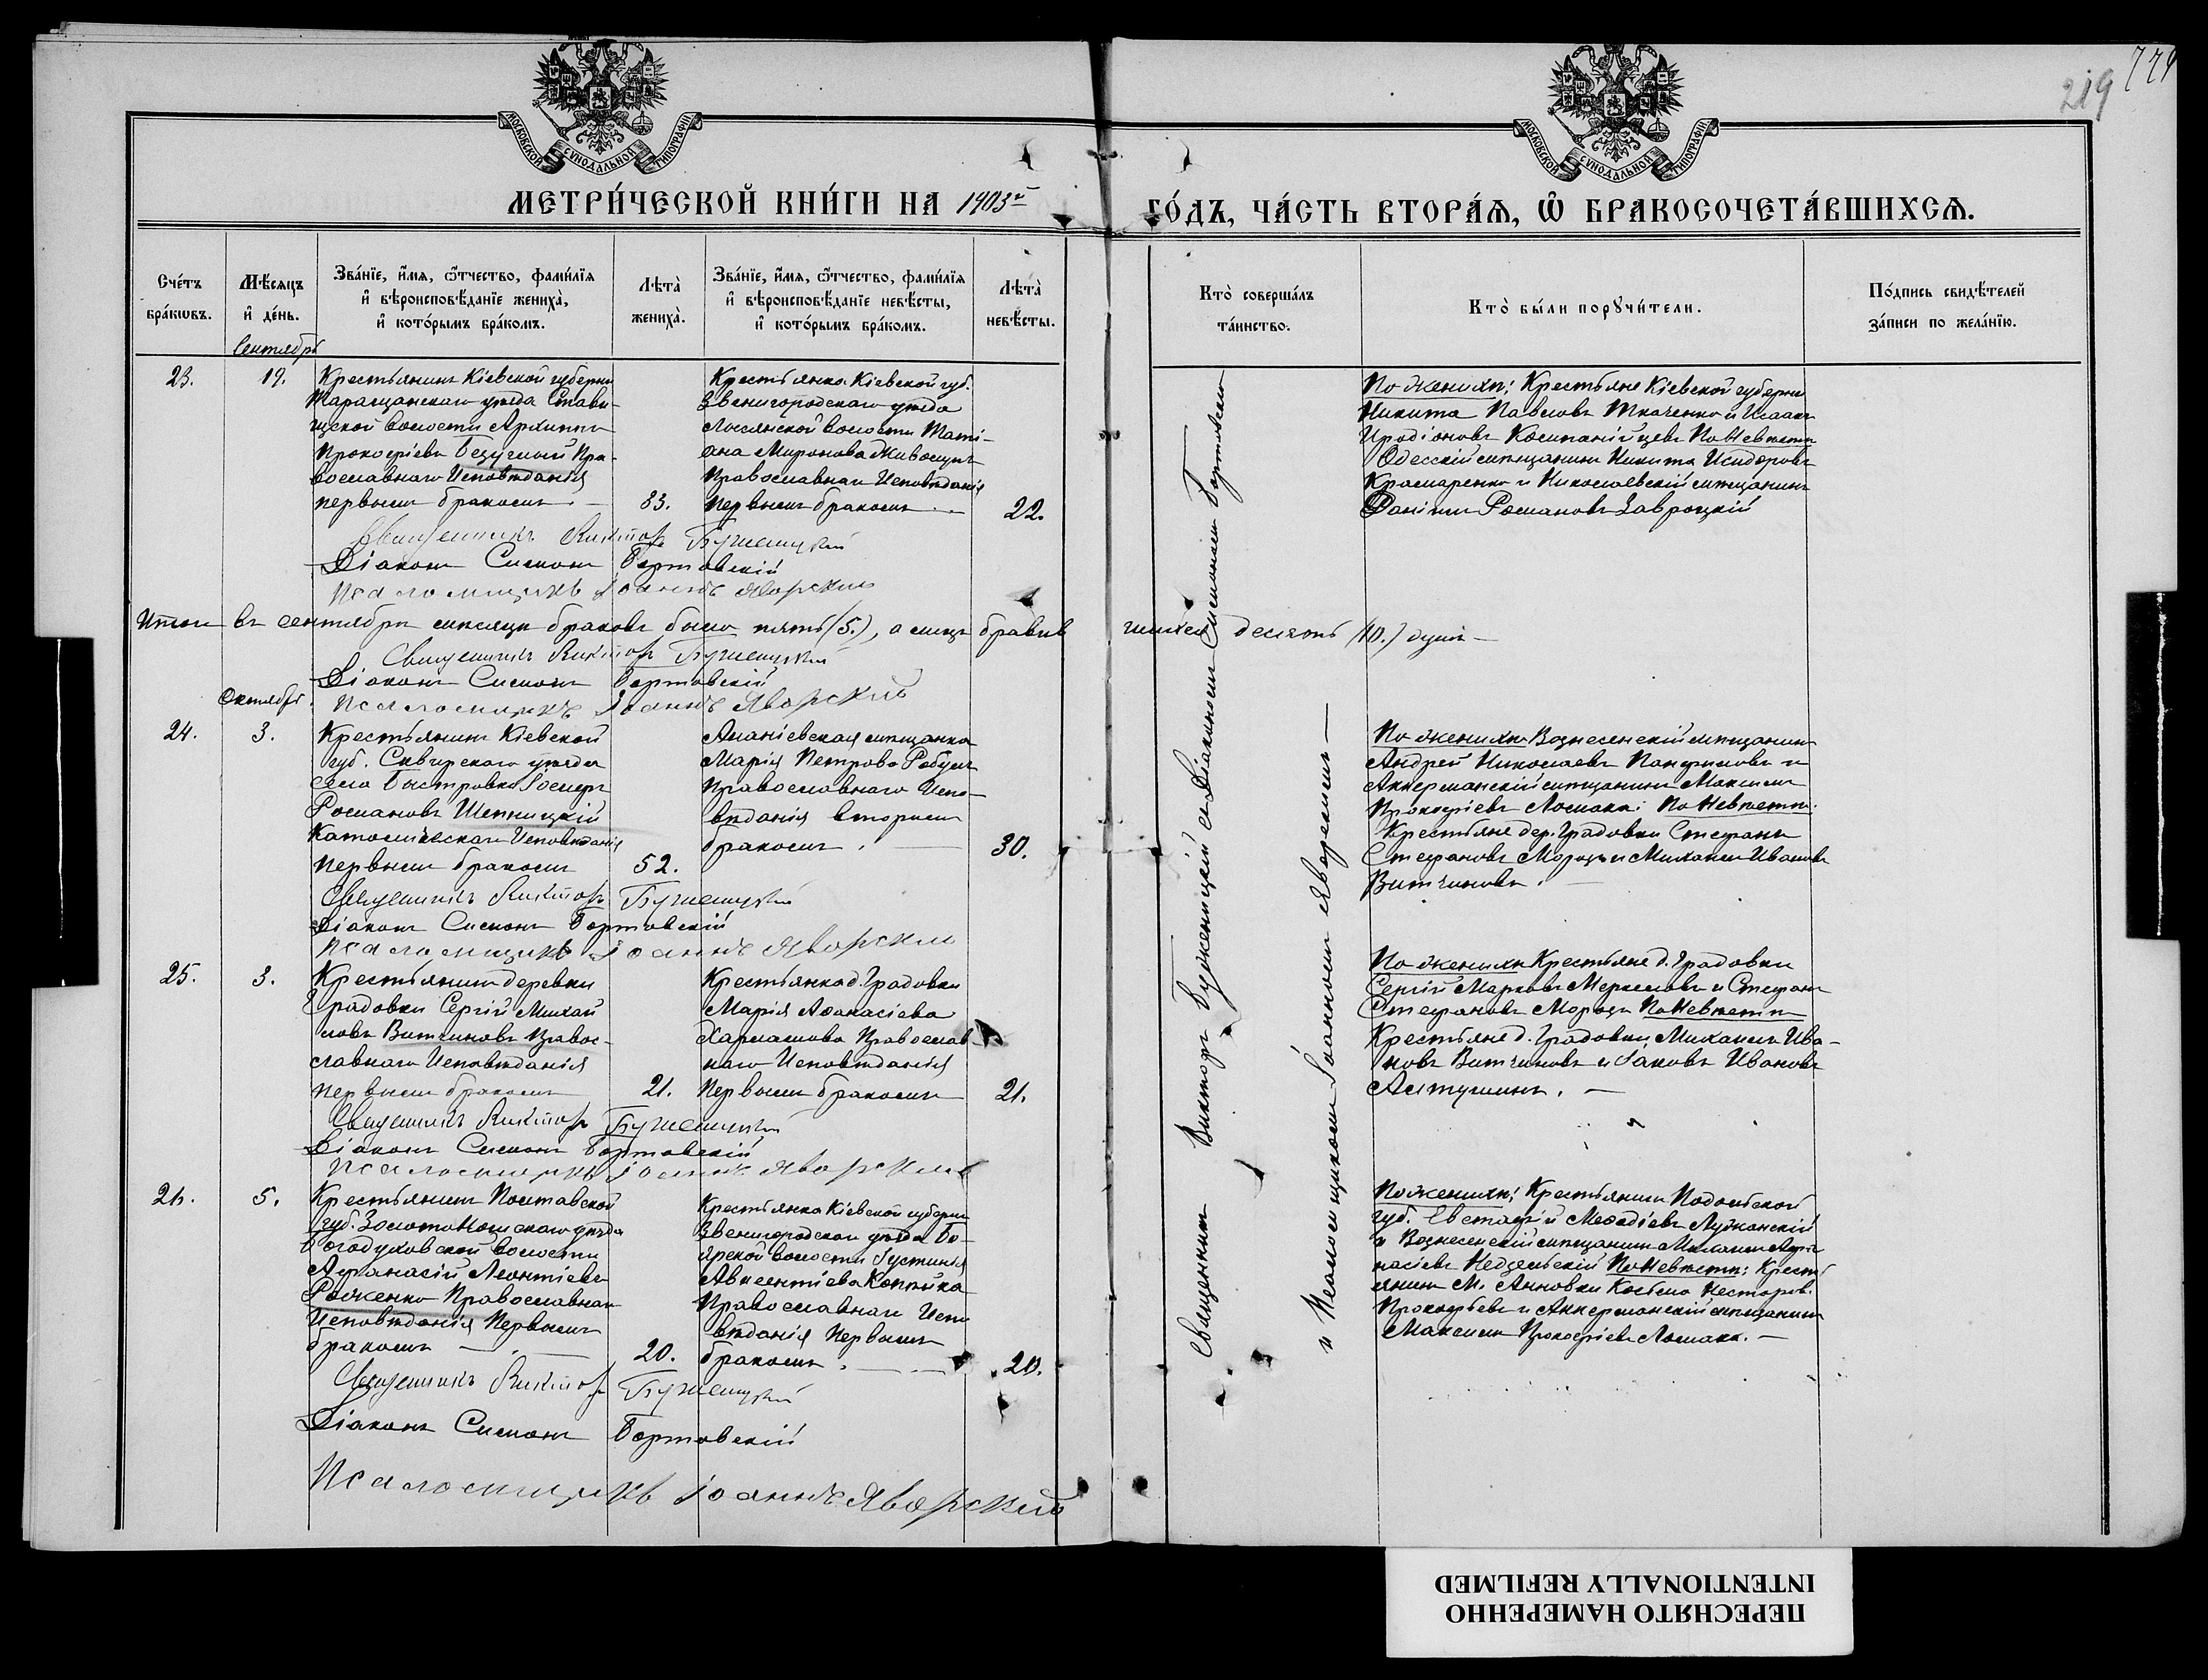 774
219
МОСКОВСКОЙ СѴНОДАЛЬНОЙ ТИПОГРАФІИ
МОСКОВСКОЙ СѴНОДАЛЬНОЙ ТИПОГРАФІИ
МЕТРИ́ЧЕСКОЙ КНИ́ГИ НА 1903й
ГО́ДЪ, ЧА́СТЬ ВТОРА́Ѧ, Ѽ БРАКОСОЧЕТА́ВШИХСѦ.
Сче́тъ
бра́кѡвъ.
Мѣ́сяцъ
и҆ де́нь.
Зва́нїе, и҆́мя, ѻ҆́тчество, фами́лїя
и҆ вѣроисповѣ́данїе женихà,
и҆ кото́рымъ бра́комъ.
Лѣтà
женихà.
Зва́нїе, и҆́мя, ѻ҆́тчество, фами́лїя
и҆ вѣроисповѣ́данїе невѣ́сты,
и҆ кото́рымъ бра́комъ.
Лѣтà
невѣ́сты.
Кто̀ соверша́лъ
та́инство.
Кто̀ бы́ли порꙋчи́тели.
По́дпись свидѣ́телей
за́писи по жела́нїю.
Сентябрь
23.
19.
Крестьянинъ Кіевской губерніи
Таращанскаго уѣзда Стави-
щской волости Архиппъ
Прокофіевъ Безуглый Пра-
вославнаго Исповѣданія
первымъ бракомъ. —
33.
Крестьянка Кіевской губ.
Звенигородскаго уѣзда
Лысянской волости Таті-
ана Миронова
Православнаго Исповѣданія
первымъ бракомъ. —
22.
По женихѣ: Крестьяне Кіевской губерніи
Никита Павловъ Ткаченко и Исаакъ
Иродіоновъ Компанійцевъ По Невѣстѣ
Одесскій мѣщанинъ Никита Исидоровъ
Крамаренко и Николаевскій мѣщанинъ
Даніилъ Романовъ Завроцкій
Священникъ Викторъ Бужениций
Діаконъ Симонъ Бортовскій
Псаломщикъ Іоаннъ Яворскій
Итого въ сентябрѣ мѣсяцѣ браковъ было пять (5.), а лицъ бракъ
шихся десять (10.) душъ —
Священникъ Викторъ
Діаконъ Симонъ Бортовскій
Псаломщикъ Іоаннъ Яворскій
Октябрь.
24.
3.
Крестьянинъ Кіевской
губ. Сквирскаго уѣзда
села Быстровки
Романовъ Шепницкій
Католическаго Исповѣданія
первымъ бракомъ
52.
Ананіевская мѣщанка
Марія Петрова
Православнаго Испо-
вѣданія вторымъ
бракомъ. —
30.
По женихѣ Вознесенскій мѣщанинъ
Андрей Николаевъ Панфиловъ и
Аккерманскій мѣщанинъ Максимъ
Прокофіевъ Ломака: По Невѣстѣ:
Крестьяне дер. Градовки Стефанъ
Стефановъ Морозъ и Михаилъ Ивановъ
Витчиновъ. —
Священникъ Викторъ
Діаконъ Симонъ Бортовскій
Псаломщикъ Іоаннъ Яворскій
25.
3.
Крестьянинъ деревни
Градовки Сергій Михай
ловъ Витчиновъ Правос-
славнаго Исповѣданія
первымъ бракомъ
21.
Крестьянка д. Градовки
Марія Аѳанасіева
Харламова Православ-
наго Исповѣданія
Первымъ бракомъ
21.
По женихѣ Крестьяне д. Градовки
Сергій Марковъ Меркуловъ и Стефанъ
Стефановъ Морозъ По Невѣстѣ
Крестьяне д. Градовки Михаилъ Ива-
новъ Витчиновъ и Іаковъ Ивановъ
Священникъ Викторъ
Діаконъ Симонъ Бортовскій
Псаломщикъ Іоаннъ Яворскій
26.
5.
Крестьянинъ Полтавской
губ. Золотоношскаго уѣзда
Богодуховской волости
Афанасій Леонтіевъ
Раженко Православнаго
Исповѣданія Первымъ
бракомъ —
20.
Крестьянка Кіевской губерніи
Звенигородскаго уѣзда Бо-
ярской волости Іустинія
Авксентіева Копѣйка
Православнаго Испо
вѣданія Первымъ
бракомъ. —
20.
По женихѣ: Крестьянинъ Подольской
губ. Евстафій Меѳодіевъ Лужанскій
и Вознесенскій мѣщанинъ Михаилъ Афа-
насіевъ Недзельскій По Невѣстѣ: Кресть
янинъ М. Анновки Косьма Несторов.
Прокофьевъ и Аккерманскій мѣщанинъ
Максимъ Прокофіевъ Ломака. —
Священникъ Викторъ
Діаконъ Симонъ Бортовскій
Псаломщикъ Іоаннъ Яворскій
Священникъ Викторъ Бужениций съ Діакономъ Симономъ Бортовскимъ
и Псаломщикомъ Іоанномъ Яворскимъ —
ПЕРЕСНЯТО НАМЕРЕННО
INTENTIONALLY REFILMED